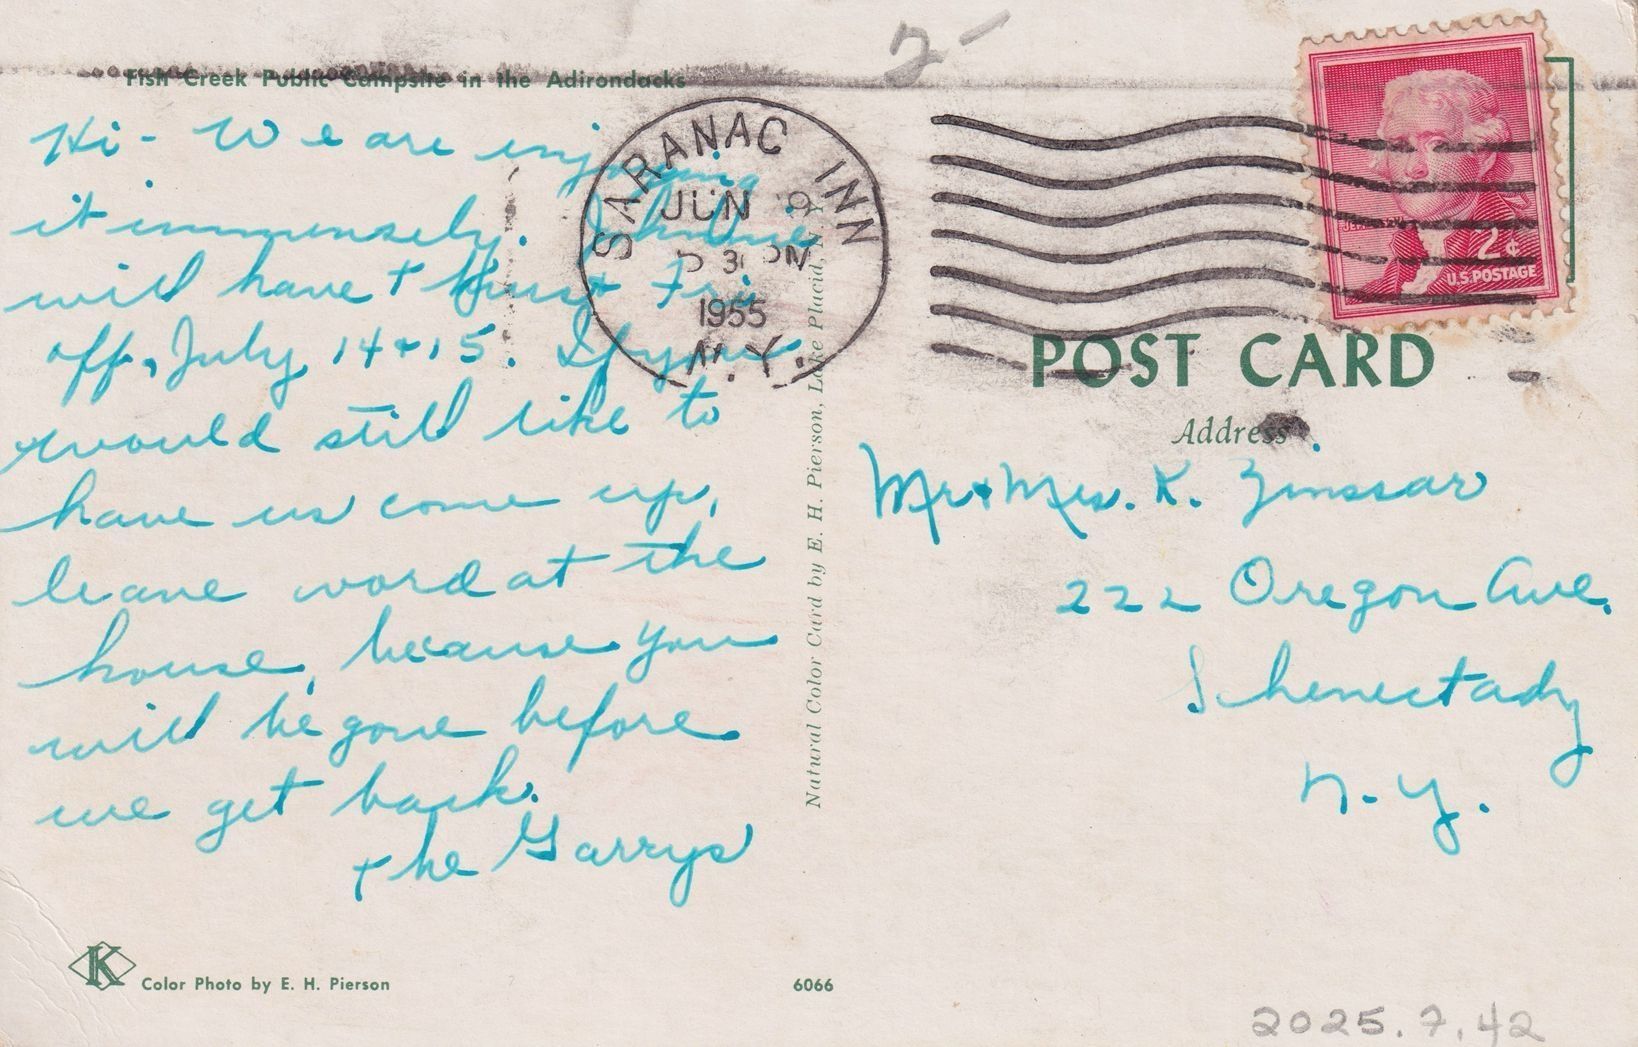 Fish Creek Public Campsite in the Adirondacks
Hi - We are enjoying
it immensely. Johnnie
will have Thurs + Fri
off, July 14 + 15. If you
would still like to
have us come up,
leave word at the
house, because you
will be gone before
we get back.
The Garrys
K
Color Photo by E. H. Pierson
6066
Natural Color Card by E. H. Pierson, Lake Placid, N. Y.
2-
SARANAC INN
JUN 9
PM
1955
N.Y.
2¢
U.S. POSTAGE
POST CARD
Address
Mr + Mrs. K. Zinssar
222 Oregon Ave.
Schenectady
N. Y.
2025.7.42